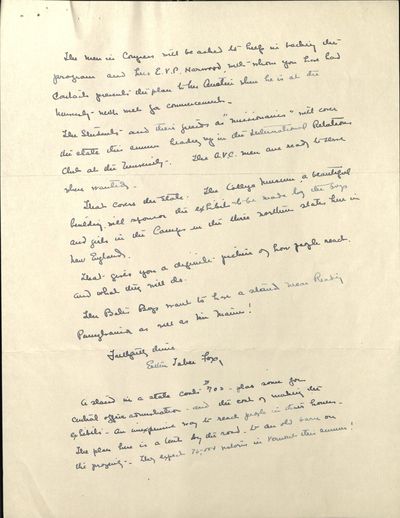 The men in Congress will be asked to help in backing the
program and Mrs E.V.P. Harwood with whom you have had
contacts presents the plan to her when she is at the
University next week for commencement.
The students and their friends as "missionaries" will cover
the state this summer heading up in the International Relations
Club at the University. The A.V.C. men are ready to serve
when wanted.
That covers the State. The College Museum, a beautiful
building will sponsor the exhibit to be made by the boys
and girls in the Camps in the three northern states here in
New England.
That gives you a definite picture of how people react.
and what they will do.
The Bates Boys want to have a stand near Reading
Pennsylvania as well as in Maine!
Faithfully
Taber Fox,
A stand in a state costs $ 70 - plus some for
central office administration - and the cost of making the
exhibits - An inexpensive way to reach people in their homes -
The plan here is a tent by the road - to an old barn on
the property - They expect motorists in Vermont this summer!